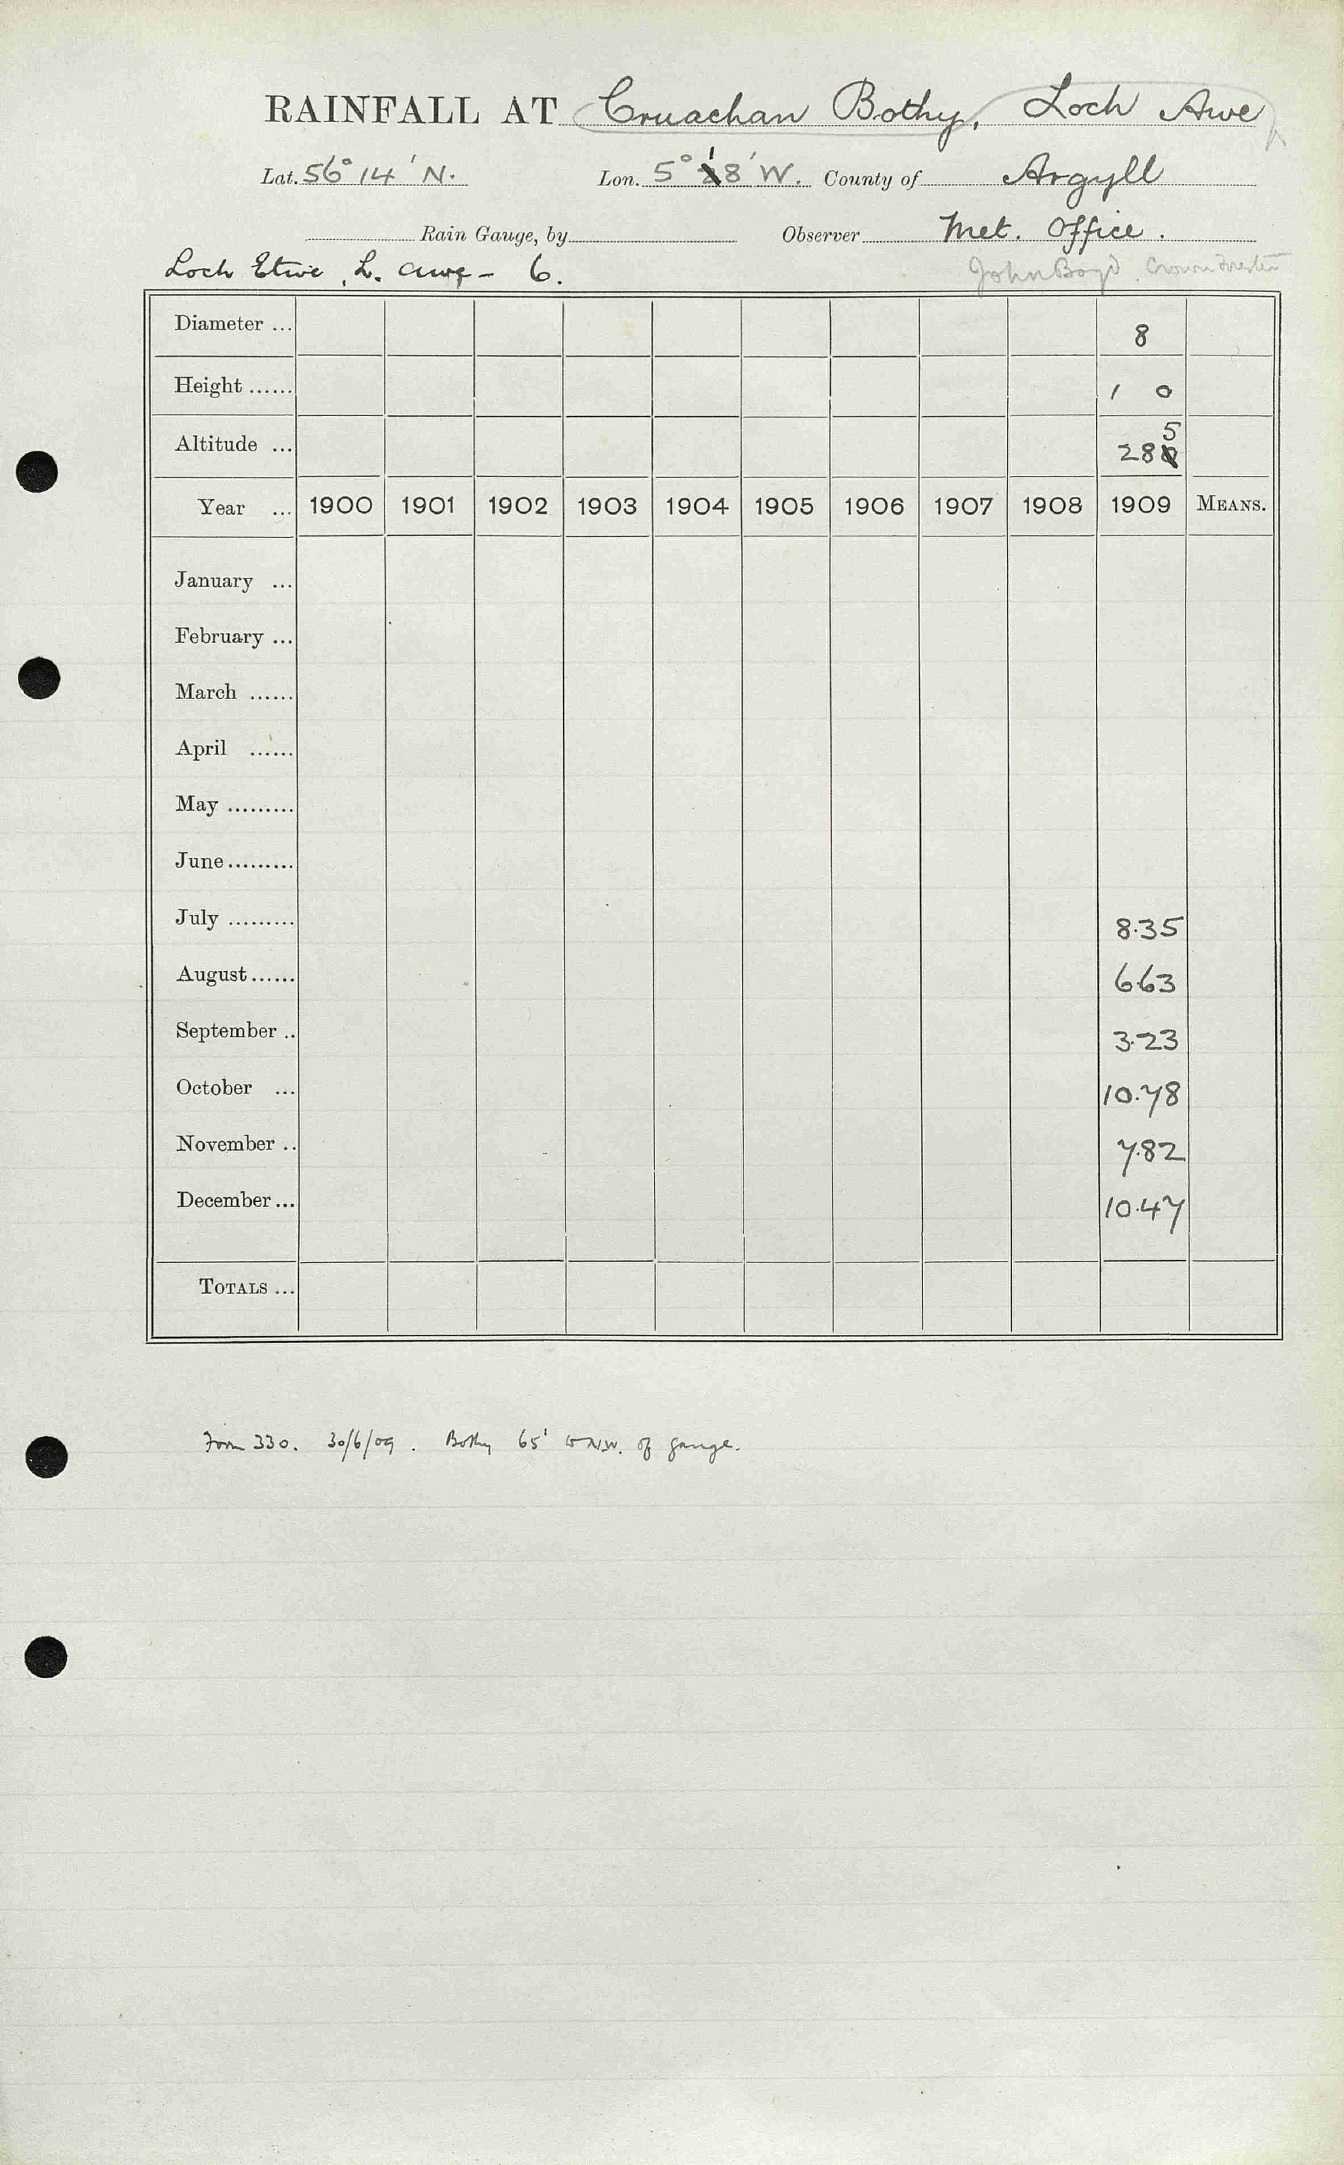 RAINFALL AT Cruachan Bothy, Loch Awe
Lat. 56° 14' N. Lon. 5° 18' W. County of Argyll
Rain Gauge, by Observer Met. Office.
Loch Etive, L. Awe - 6. John Boyd. Crown Forester
Diameter ... 8
Height ...... 1 0
Altitude ... 285
Year ... 1900 1901 1902 1903 1904 1905 1906 1907 1908 1909 MEANS.
January ...
February ...
March ......
April ......
May .........
June .........
July ......... 8.35
August ...... 6.63
September .. 3.23
October ... 10.78
November .. 7.82
December ... 10.47
TOTALS ...
Form 330. 30/6/09. Bothy 65' to N.W. of gauge.